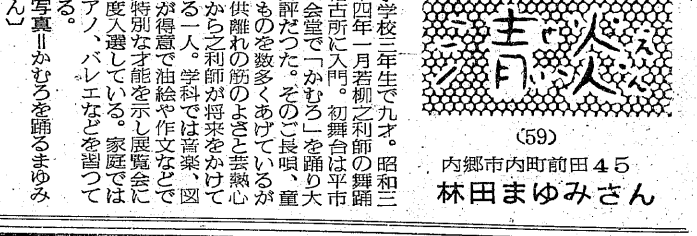 青い炎
(59)
内郷市内町前田45
林田まゆみさん
学校三年生で九才。昭和三
四年一月若柳之利師の舞踊
古所に入門。初舞台は平市
会堂で「かむろ」を踊り大
評だつた。そのご長唄、童
ものを数多くあげているが
供離れの筋のよさと芸熱心
から之利師が将来をかけて
る一人。学科では音楽、図
が得意で油絵や作文などで
特別な才能を示し展覧会に
度入選している。家庭では
アノ、バレエなどを習つて
る。
写真=かむろを踊るまゆみ
ん〕